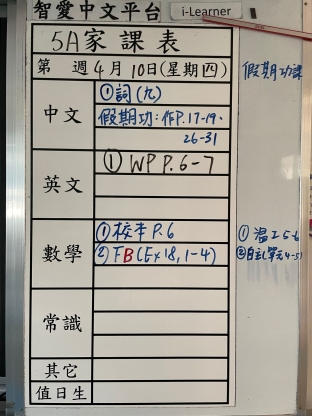 智愛中文平台
i-Learner
5A家課表
第 週4月10日(星期四)
假期功課
中文
①詞(九)
假期功:作P.17-19.
26-31
英文
① WP P.6-7
數學
①校本P.6
②FB(Ex18,1-4)
①溫工5-6
②自主(單元4-5)
常識
其它
值日生